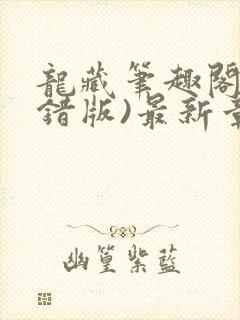 龍藏筆趣閣
錯版)最新章
幽篁紫藍